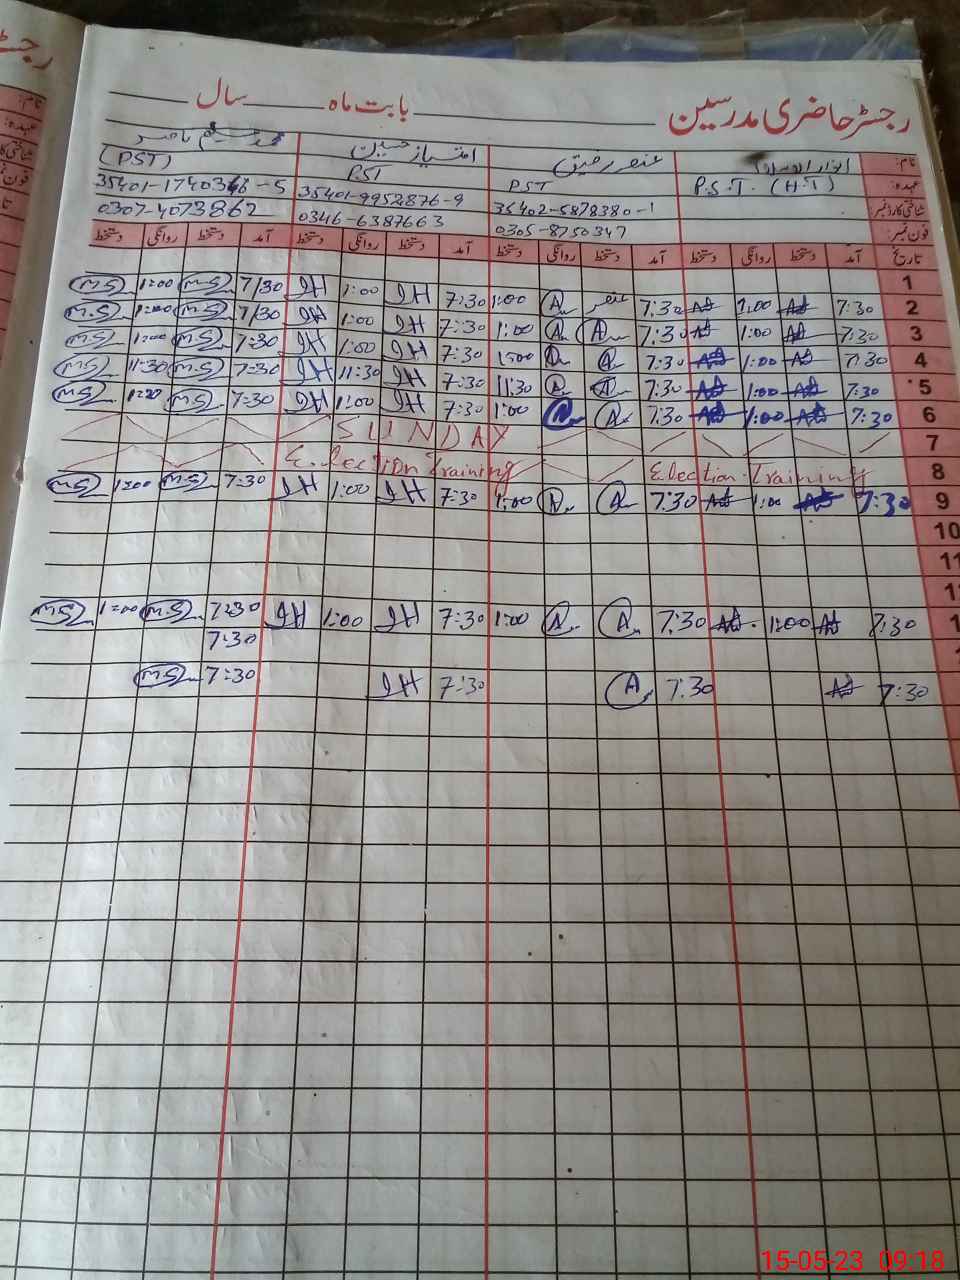 رجسٹر حاضری مدرسین ــــــ بابت ماہ ــــــ سال ــــــ
نام: عنصر رفیق امتیاز حسین محمد سلیم ناصر
عہدہ: P.S.T. (H.T) PST PST (PST)
شناختی کارڈ نمبر: 35402-5878380-1 35401-9952876-9 35401-1740346-5
فون نمبر: 0305-8750347 0346-6387663 0307-4073862
تاریخ آمد دستخط روانگی دستخط آمد دستخط روانگی دستخط آمد دستخط روانگی دستخط آمد دستخط روانگی دستخط
1
2 7:30 AS 1:00 AS 7:30 عنصر A 1:00 7:30 IH 1:00 IH 7/30 M.S 1:00 M.S
3 7:30 AS 1:00 AS 7:30 A A 1:00 7:30 IH 1:00 IH 7/30 M.S 1:00 M.S
4 7:30 AS 1:00 AS 7:30 A A 1:00 7:30 IH 1:00 IH 7:30 M.S 1:00 M.S
5 7:30 AS 1:00 AS 7:30 A A 11:30 7:30 IH 11:30 IH 7:30 M.S 11:30 M.S
6 7:30 AS 1:00 AS 7:30 A A 1:00 7:30 IH 1:00 IH 7:30 M.S M.S
7 SUNDAY
8 Election Training Election Training
9 7:30 AS 1:00 AS 7:30 A A 1:00 7:30 IH 1:00 IH 7:30 M.S 1:00 M.S
10
11
1
1 7:30 AS 1:00 AS 7:30 A A 1:00 7:30 IH 1:00 IH 7:30 M.S 1:00 M.S
7:30
7:30 AS 7:30 A 7:30 IH 7:30 M.S
15-05-23 09:18